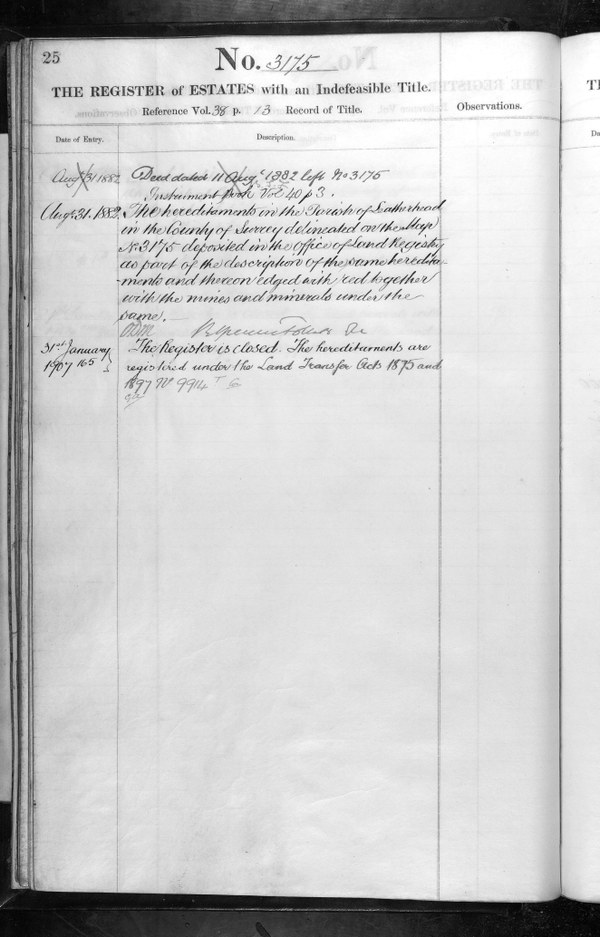 25
No. 3175
THE REGISTER of ESTATES with an Indefeasible Title.
Reference Vol. 38 p. 13 Record of Title.
Observations.
Date of Entry.
Description.
Augt 31 1882 Deed dated 11 Augt 1882 left No 3175
Instrument Book Vol 40 p 3.
Augt 31. 1882. The hereditaments in the Parish of Leatherhead
in the County of Surrey delineated on the Map
No 3175 deposited in the office of Land Registry
as part of the description of the same heredita-
-ments and thereon edged with red together
with the mines and minerals under the
same.
31st January The Register is closed. The hereditaments are
1907 165 registered under the Land Transfer Acts 1875 and
1897 No 9914